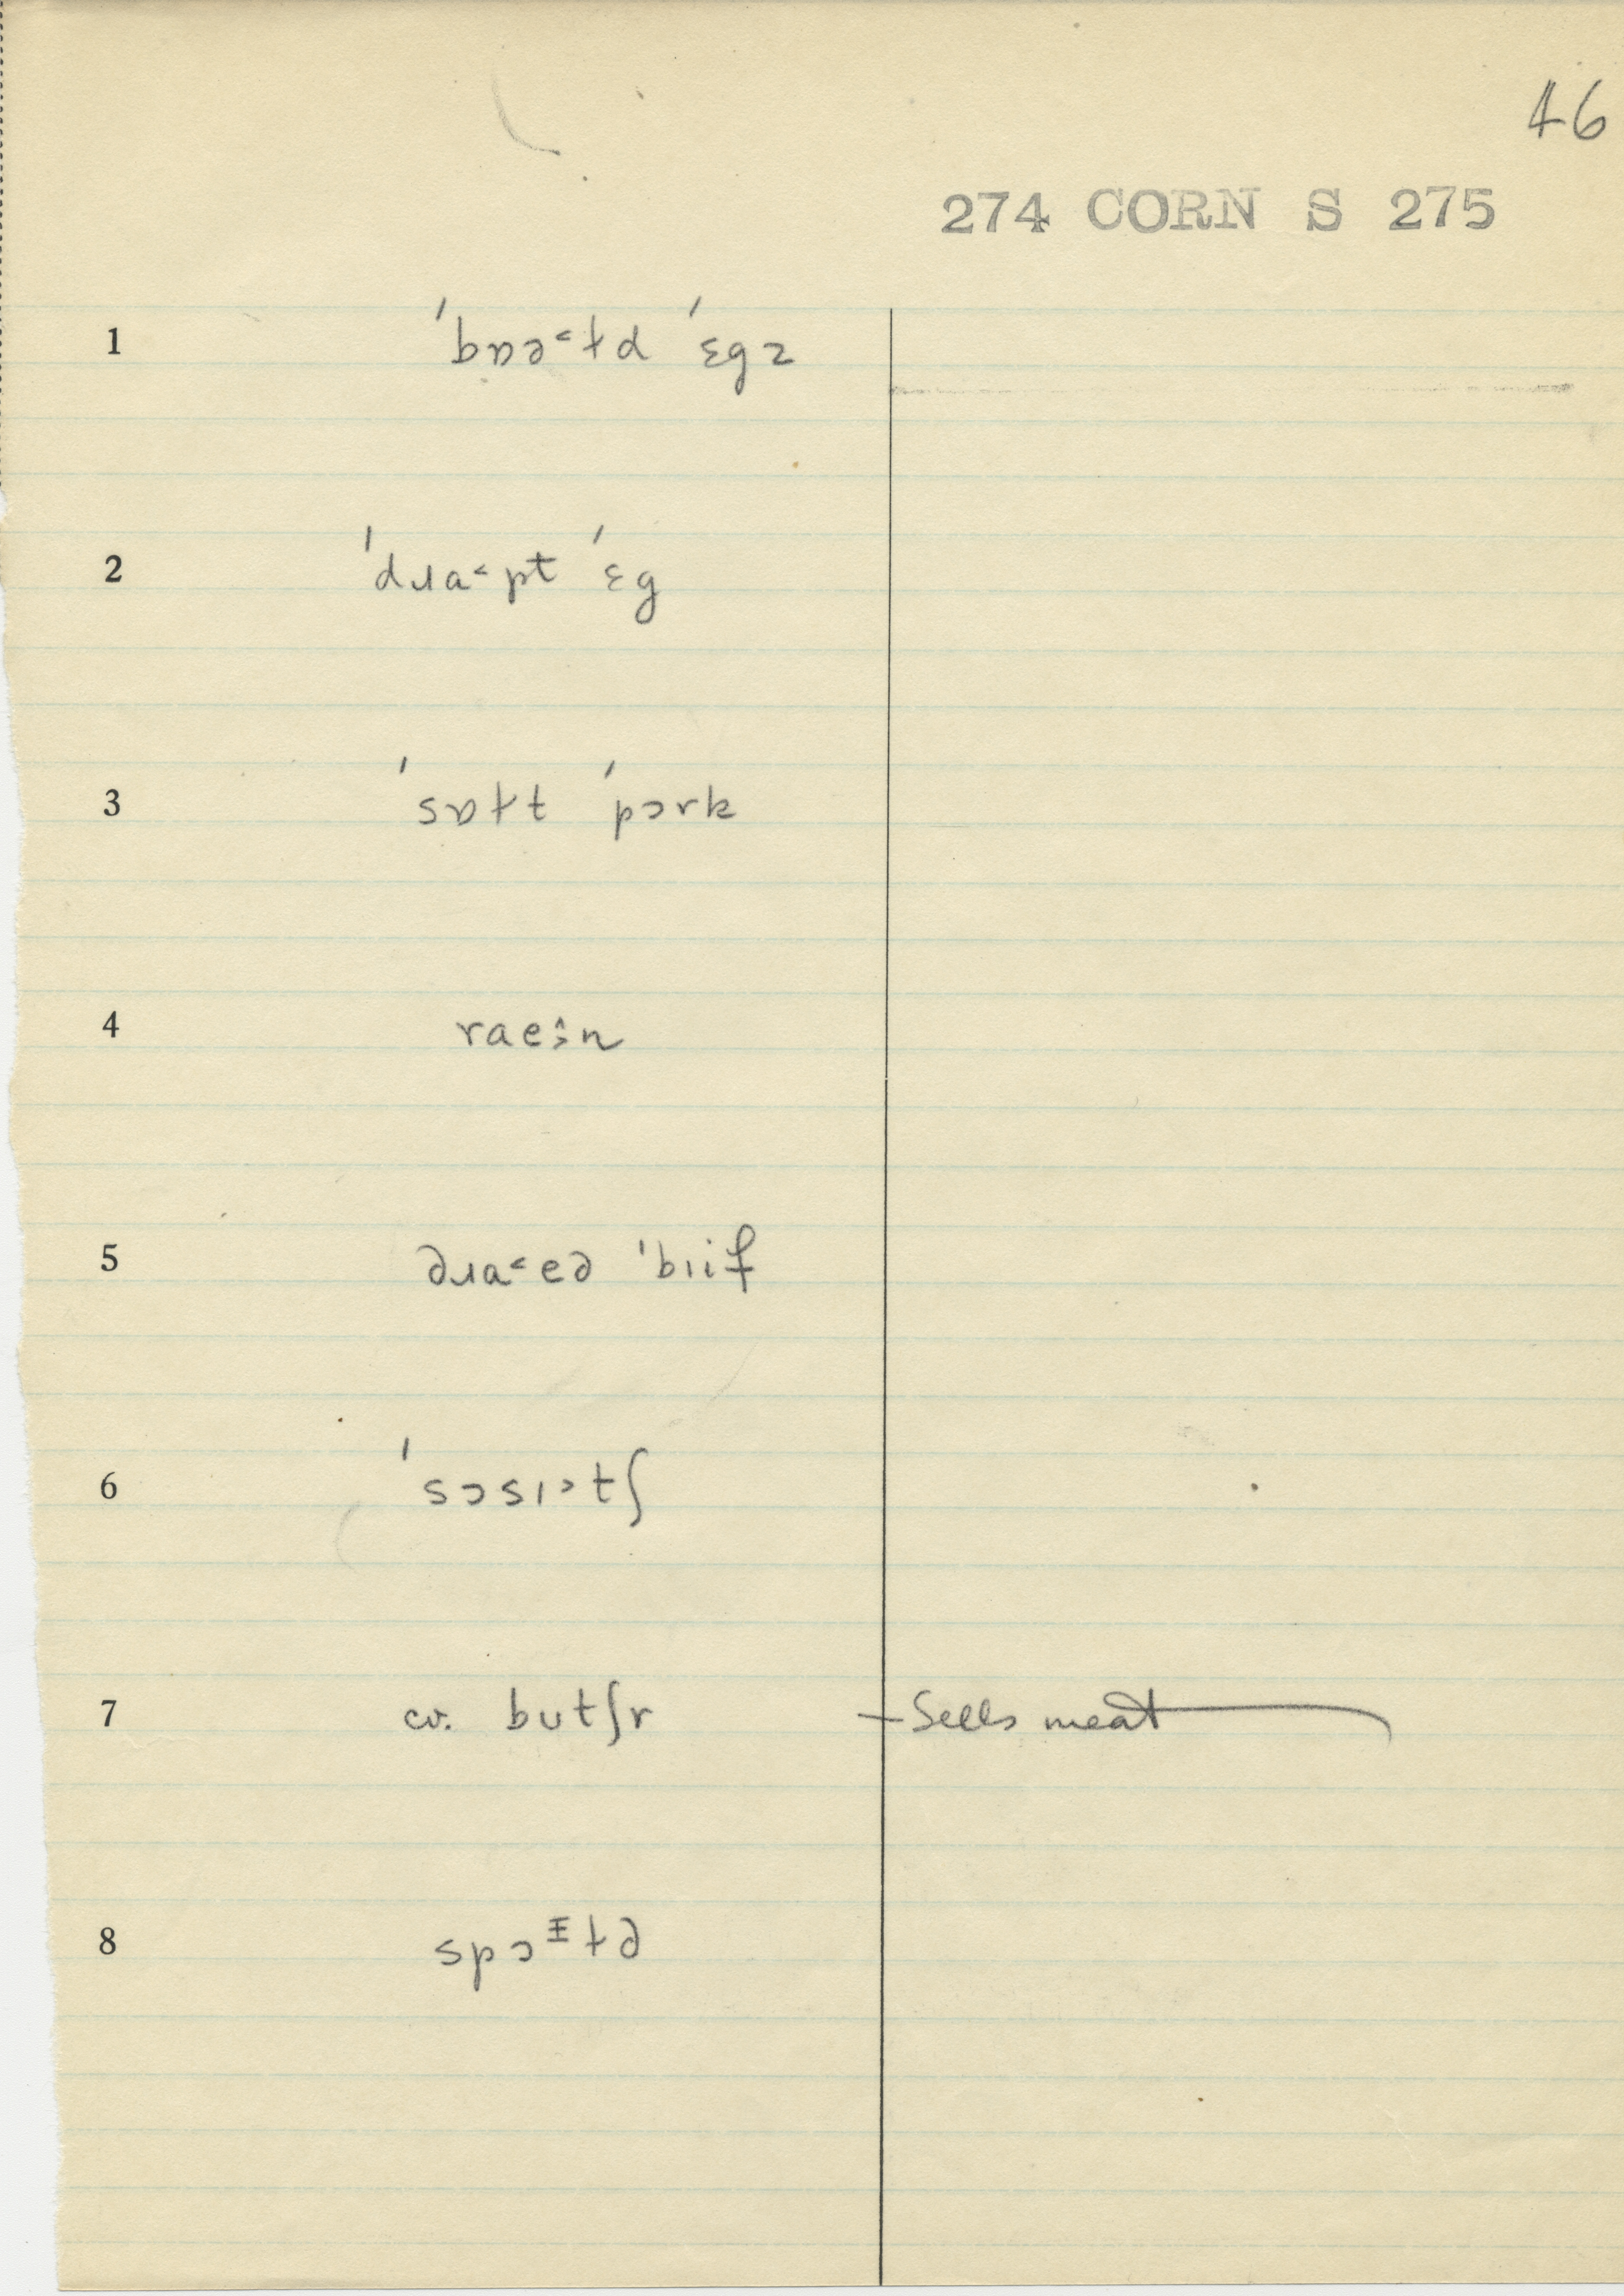 46
274 CORN S 275
1 ˈbɒə˂td ˈɛgz
2 ˈdɹa˂pt ˈɛg
3 ˈsɒɫt ˈpɔrk
4 raeːn
5 dɹa˂ed ˈbiif
6 ˈsɔsɪ˃tʃ
7 cv. butʃr — Sells meat
8 spɔɪtd